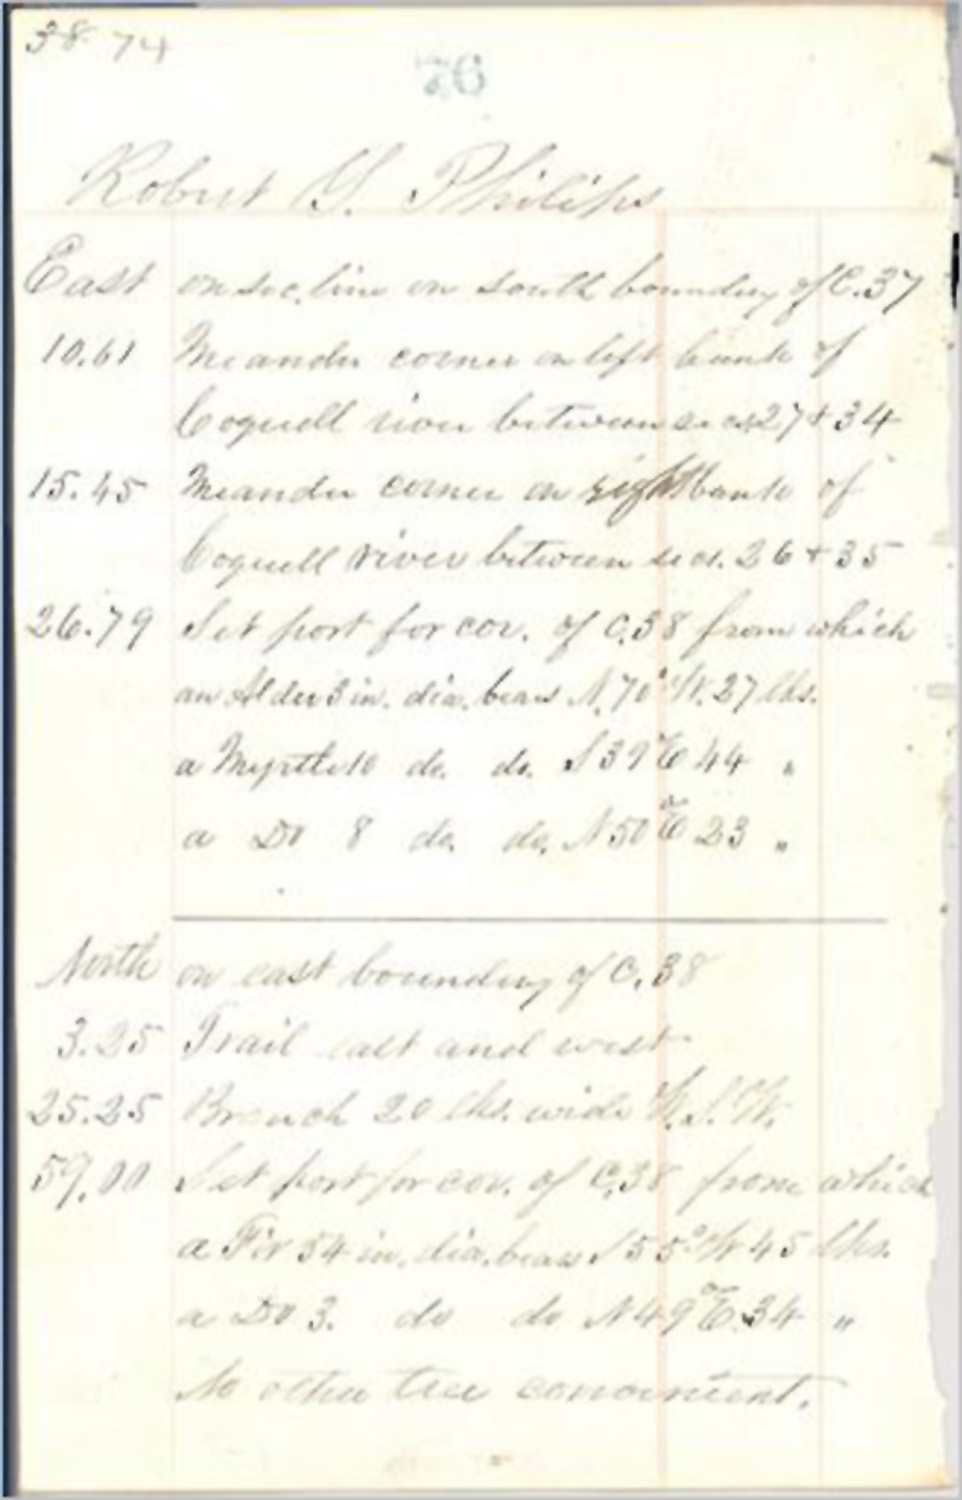 38 74
76
Robert Y. Philips
East on sec. line on south boundry of C.37
10.61 Meander corner on left bank of
Coquell river between secs. 27 & 34
15.45 Meander corner on right bank of
Coquell river between secs. 26 & 35
26.79 Set post for cor. of C.38 from which
an Alder 3 in. dia. bears N.70° W. 27 lks.
a Myrtle 10 do. do. S 39° E 44 "
a Do 8 do. do. N 50° E 23 "
North on east boundry of C.38
3.25 Trail east and west
25.25 Branch 20 lks. wide W.S.W.
59.00 Set post for cor. of C.38 from which
a Fir 54 in. dia. bears S 55° W 45 lks.
a Do 3. do do N 49° E.34 "
No other tree convenient.